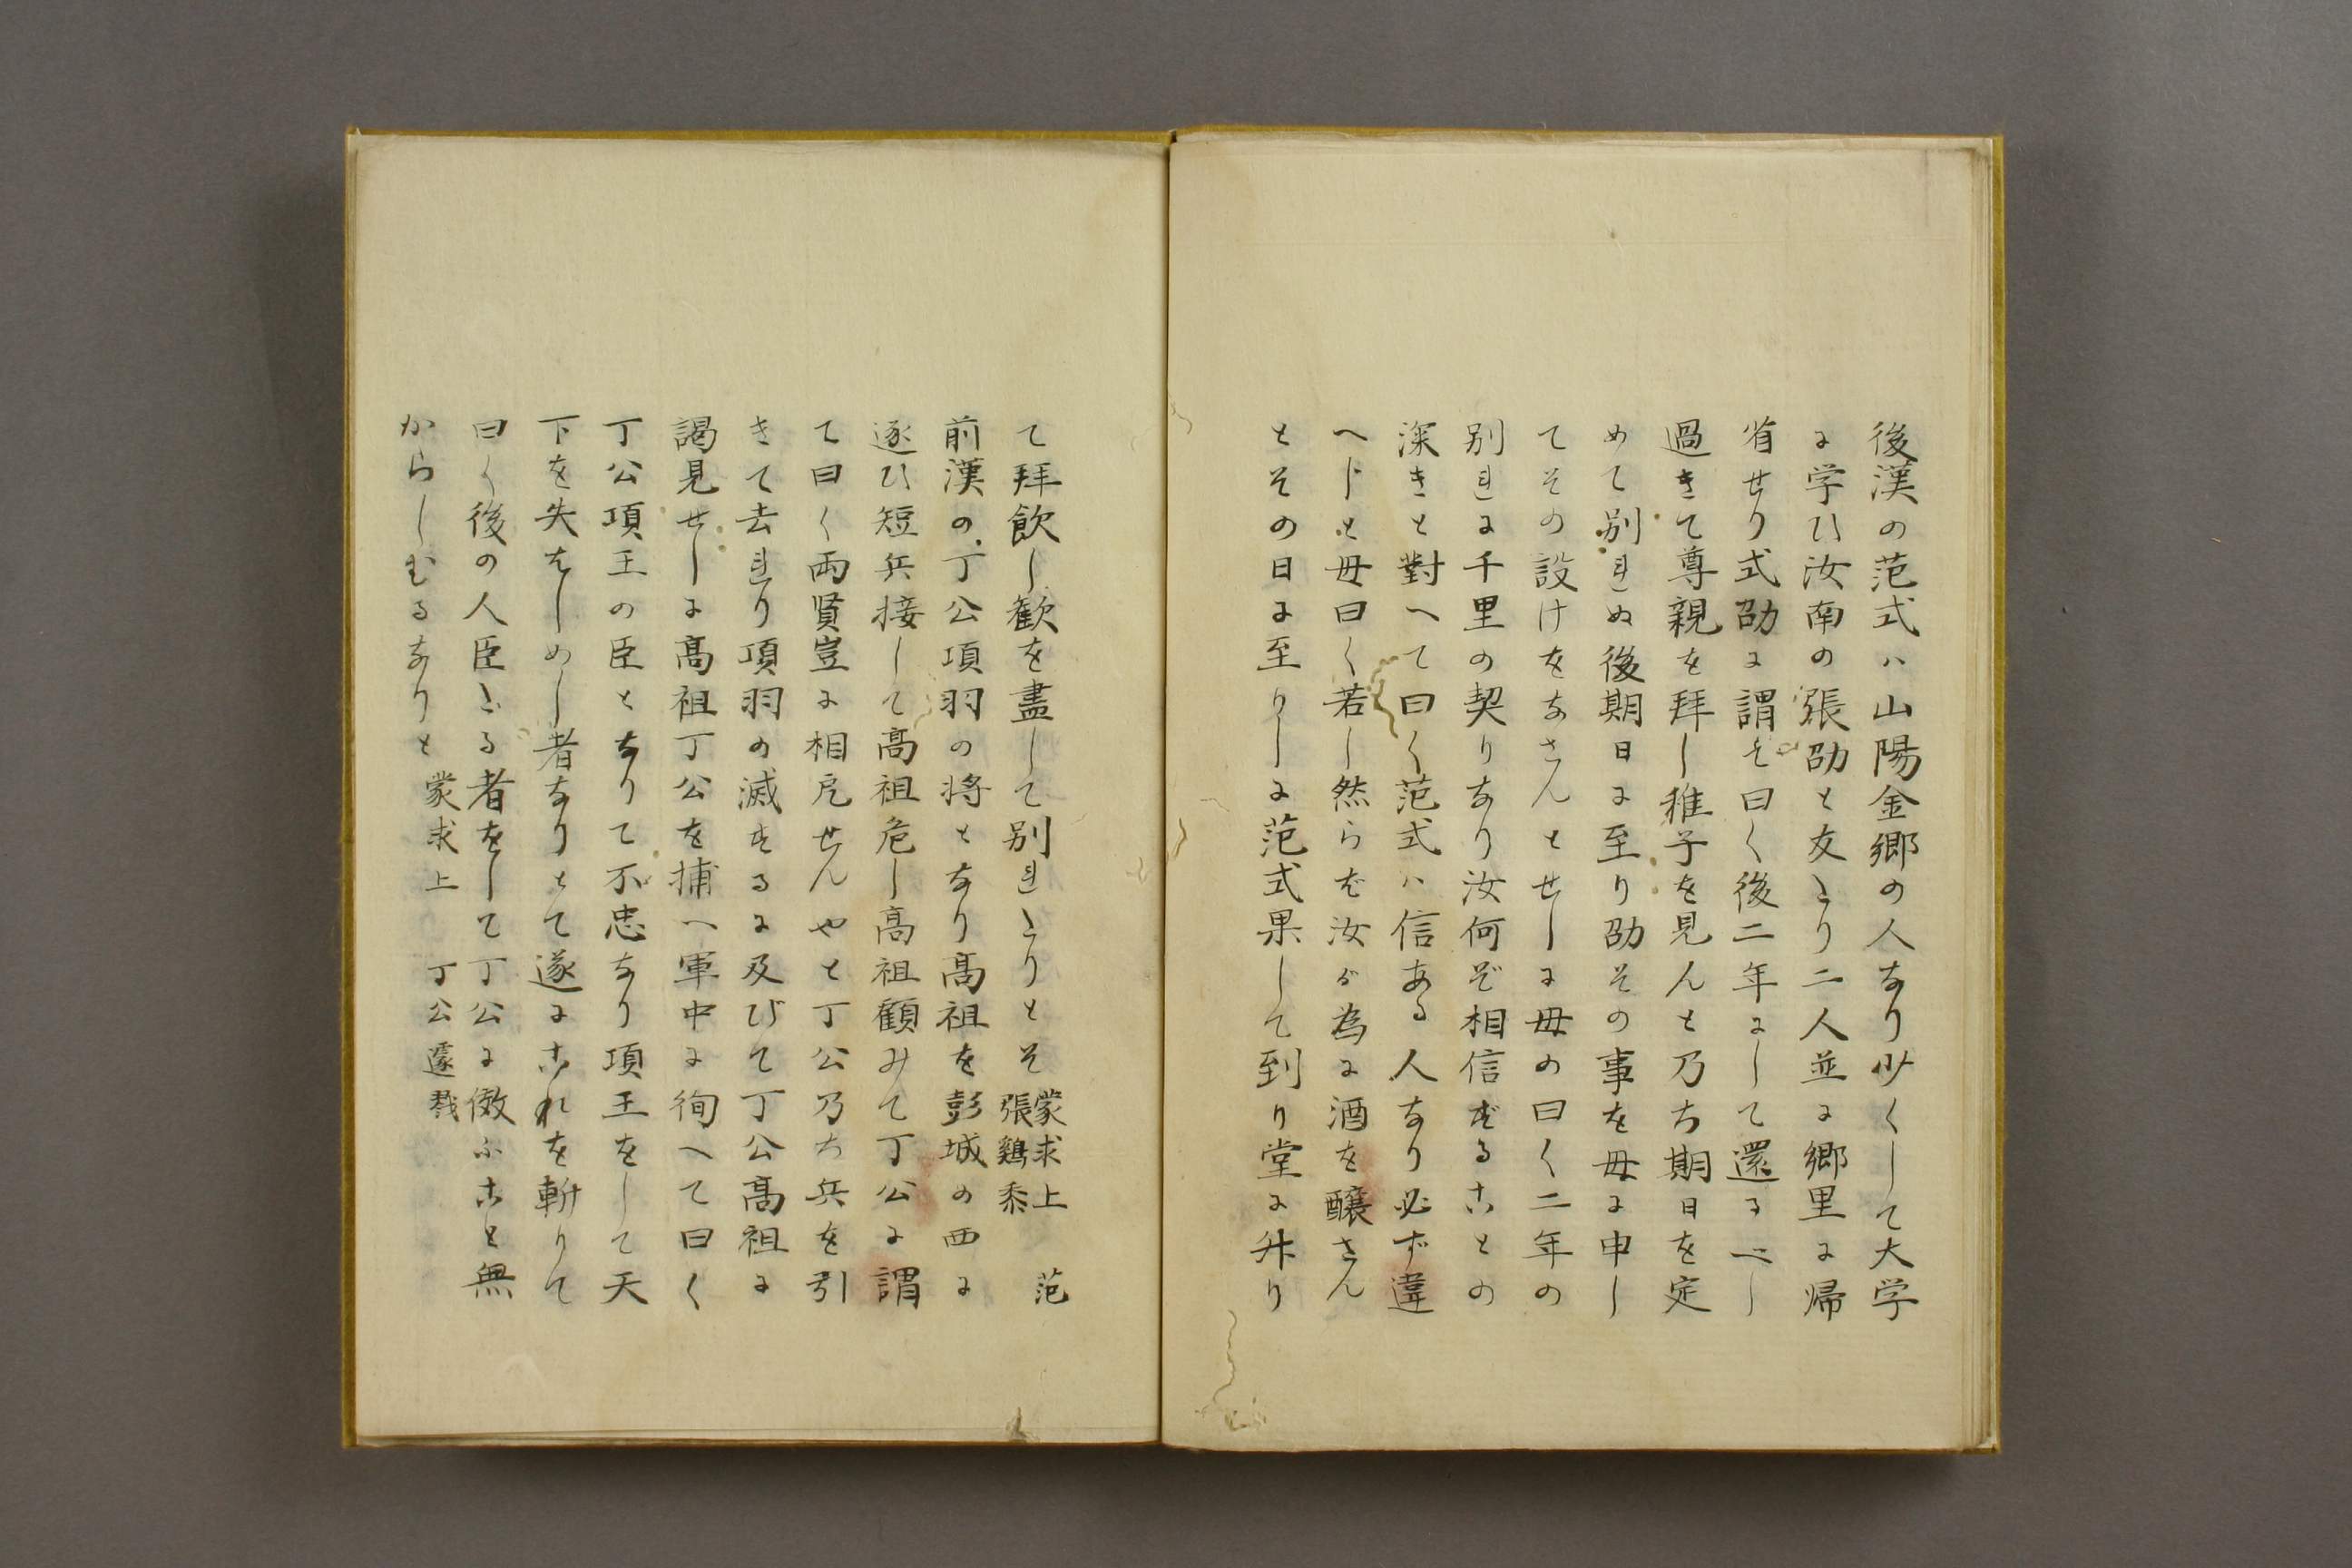 後漢の范式ハ山陽金郷の人なり少くして大学
に学ひ汝南の張劭と友たり二人並に郷里に帰
省せり式劭に謂て曰く後二年にして還るべし
過きて尊親を拜し稚子を見んと乃ち期日を定
めて別れぬ後期日に至り劭その事を母に申し
てその設けをなさんとせしに母の曰く二年の
別れに千里の契りなり汝何ぞ相信ずることの
深きと對へて曰く范式ハ信ある人なり必ず違
へじと母曰く若し然らば汝が為に酒を醸さん
とその日に至りしに范式果して到り堂に升り
て拜飲し歓を盡して別れたりとそ
蒙求上 范
張鷄黍
前漢の丁公項羽の将となり髙祖を彭城の西に
逐ひ短兵接して髙祖危し髙祖顧みて丁公に謂
て曰く両賢豈に相戹せんやと丁公乃ち兵を引
きて去れり項羽の滅するに及びて丁公髙祖に
謁見せしに髙祖丁公を捕へ軍中に徇へて曰く
丁公項王の臣となりて不忠なり項王をして天
下を失はしめし者なりとて遂にこれを斬りて
曰く後の人臣たる者をして丁公に倣ふこと無
からしむるなりと
蒙求上 丁公遽戮